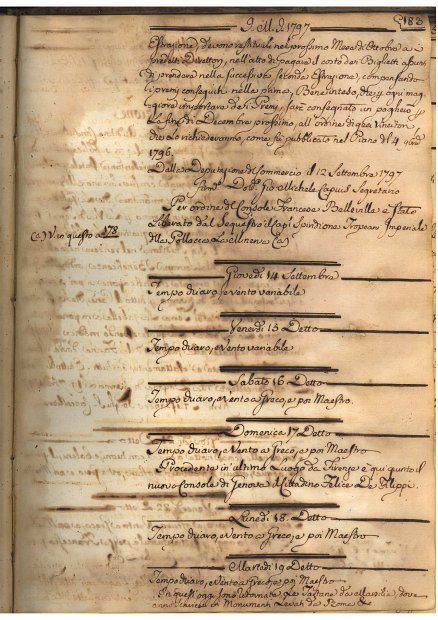 1797
183
Estrazione, devono restituirsi nel prossimo Mese di Ottobre a i
predetti Dilatton, nell'atto di pagare il costo dei Biglietti
di prendere nella successiva seconda Estrazione, compensando
i premj conseguiti nella prima, Beninteso, che ogni mag-
giore importare de i Premj, sarà consegnato un pagherò
fine di Decembre prossimo, all'ordine di
che lo richiederanno, come fu pubblicato nel Piano di 4
1796.
Dalla Deputazione di Commercio il 12 Settembre 1797
Gio Michele Segretario
Per ordine di Console Francese Belleville è stato
Liberato dal Sequestro il Spiridione Imperiale
della Pollacca (a)
(a) V. in questo a 178
Giovedi 14 Settembre
Tempo chiaro, e vento variabile
Venerdi 15 Detto
Tempo chiaro, e Vento variabile
Sabato 16 Detto
Tempo chiaro, e Vento a Greco, e poi Maestro.
Domenica 17 Detto
Tempo chiaro, e Vento a Greco, e poi Maestro
Procedente in ultimo Luogo da Firenze è qui giunto il
nuovo Console di Genova il Cittadino Felice De Filippi.
Lunedi 18 Detto
Tempo chiaro, e Vento a Greco, e poi Maestro
Martedi 19 Detto
Tempo chiaro, e Vento a Greco, e poi Maestro
In quest'oggi sono ritornate Le Tartane da Marsilia, dove
anno Monumenti Levati da Roma